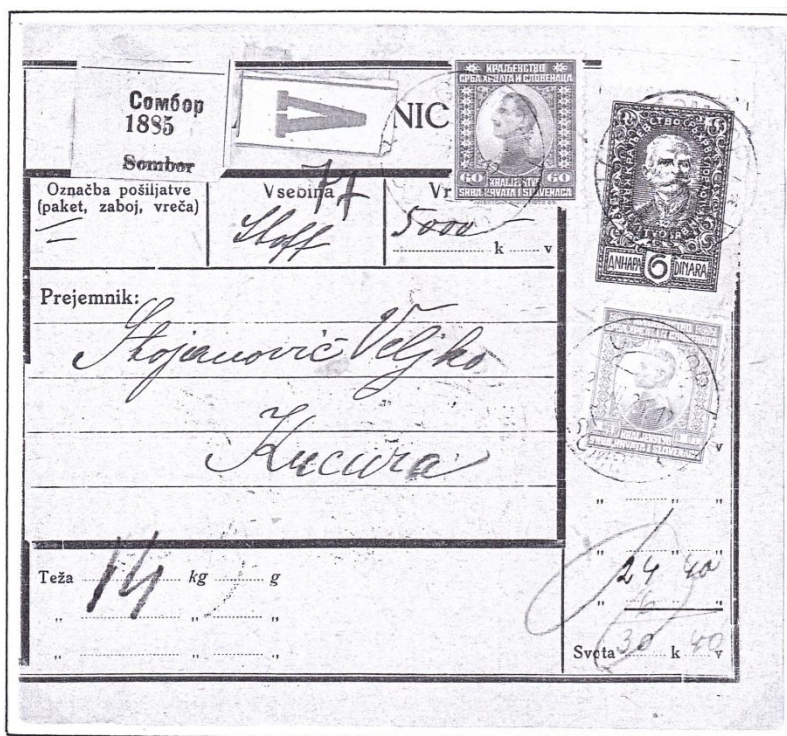 Сомбор
1885
Sombor
V
NIC
КРАЉЕВСТВО
СРБА ХРВАТА И СЛОВЕНАЦА
60 60
KRALJEVSTVO
SRBA HRVATA I SLOVENACA
ДИНАРА 6 DINARA
Označba pošiljatve
(paket, zaboj, vreča)
Vsebina
Stoff
Vr
5000
k v
Prejemnik:
Stojanović Veljko
Kucura
v
" " "
"
24 40
" "
6
Teža 14 kg g
" " "
" " "
Svota 30 k 40 v